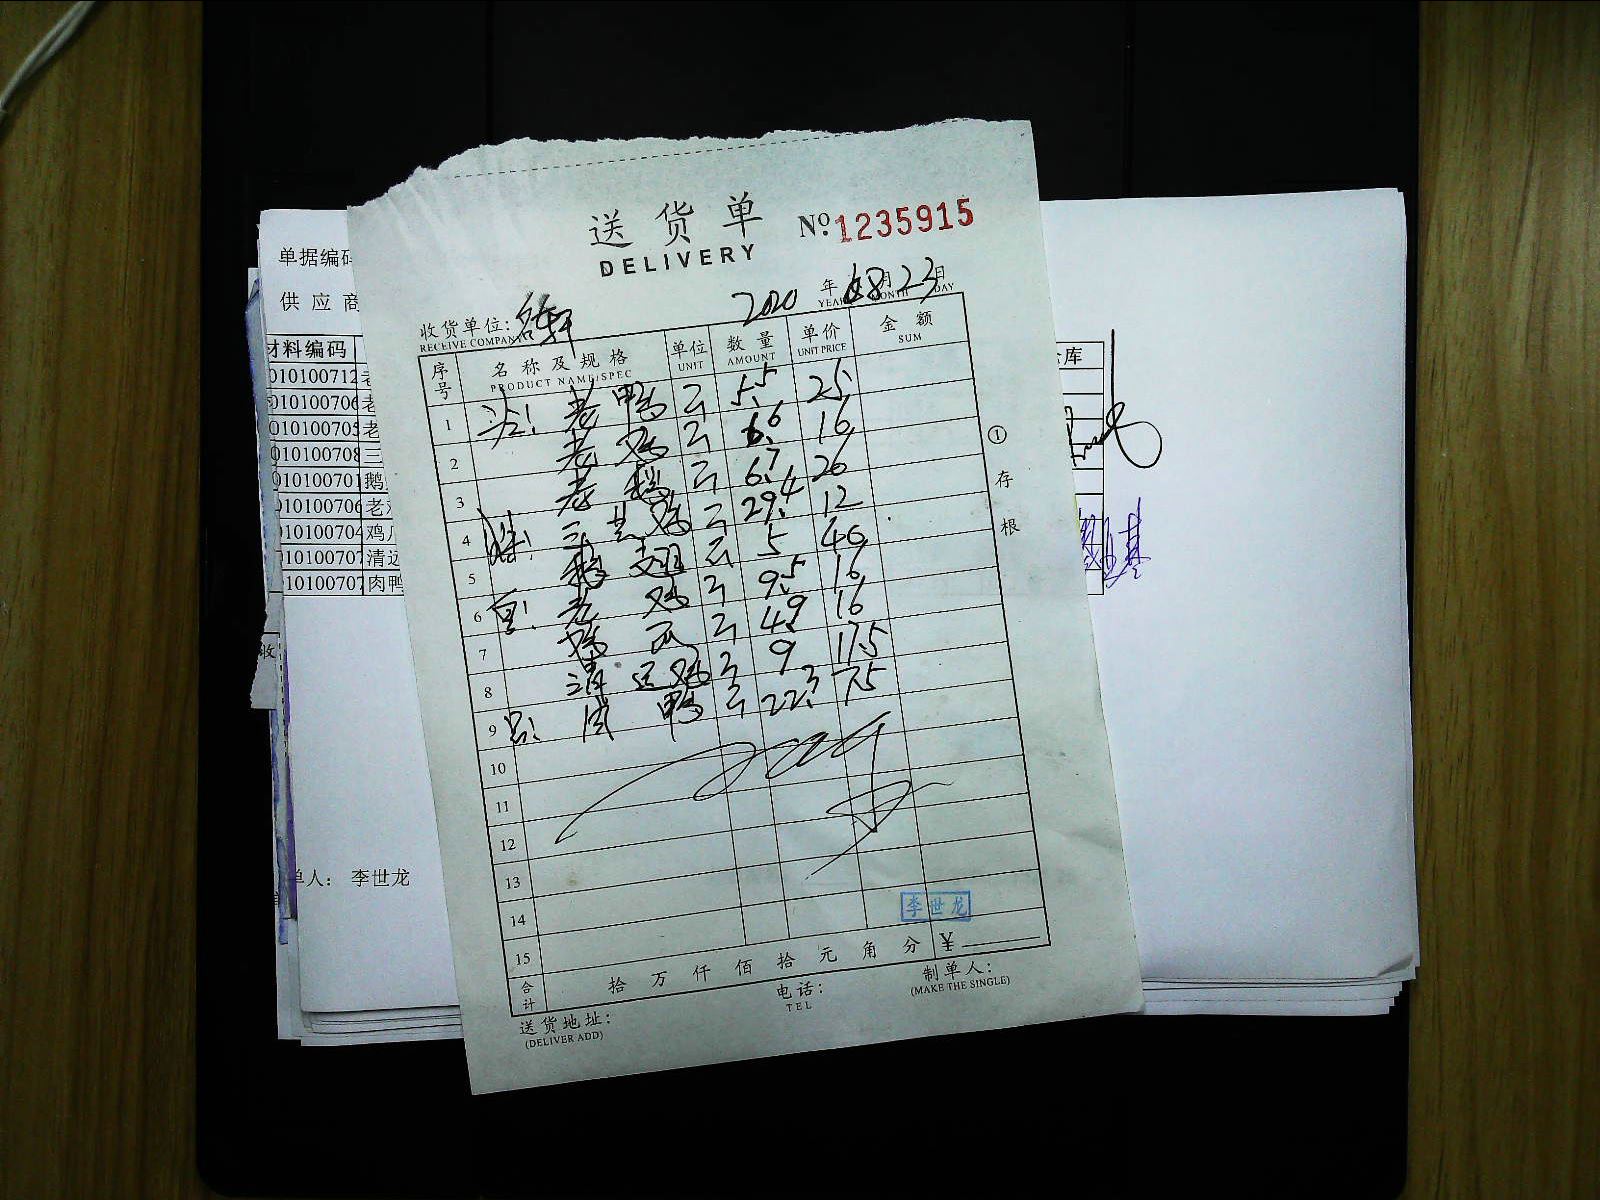 送货单
DELIVERY
№:1235915
2020年08月23日
YEAR MONTH DAY
收货单位:名轩
RECEIVE COMPAN
序号 名称及规格 单位 数量 单价 金额
PRODUCT NAME/SPEC UNIT AMOUNT UNIT PRICE SUM
1 老鸭 5.5 25
2 老鸡 6.6 16
3 老鹅 6.7 26
4 三黄鸡 29.4 12
5 鹅翅 5 46
6 老鸡 9.5 16
7 鸡爪 4.9 16
8 清远鸡 9 17.5
9 肉鸭 22.3 7.5
10
11
12
13
14
15
李世龙
合计 拾万仟佰拾元角分 ¥
①存根
送货地址:
(DELIVER ADD)
电话:
TEL
制单人:
(MAKE THE SINGLE)
单据编码
供应商
材料编码
010100712
010100706
010100705
010100708 三
010100701 鹅
010100706 老
010100704 鸡
010100707 清远
010100707 肉鸭
单人: 李世龙
库